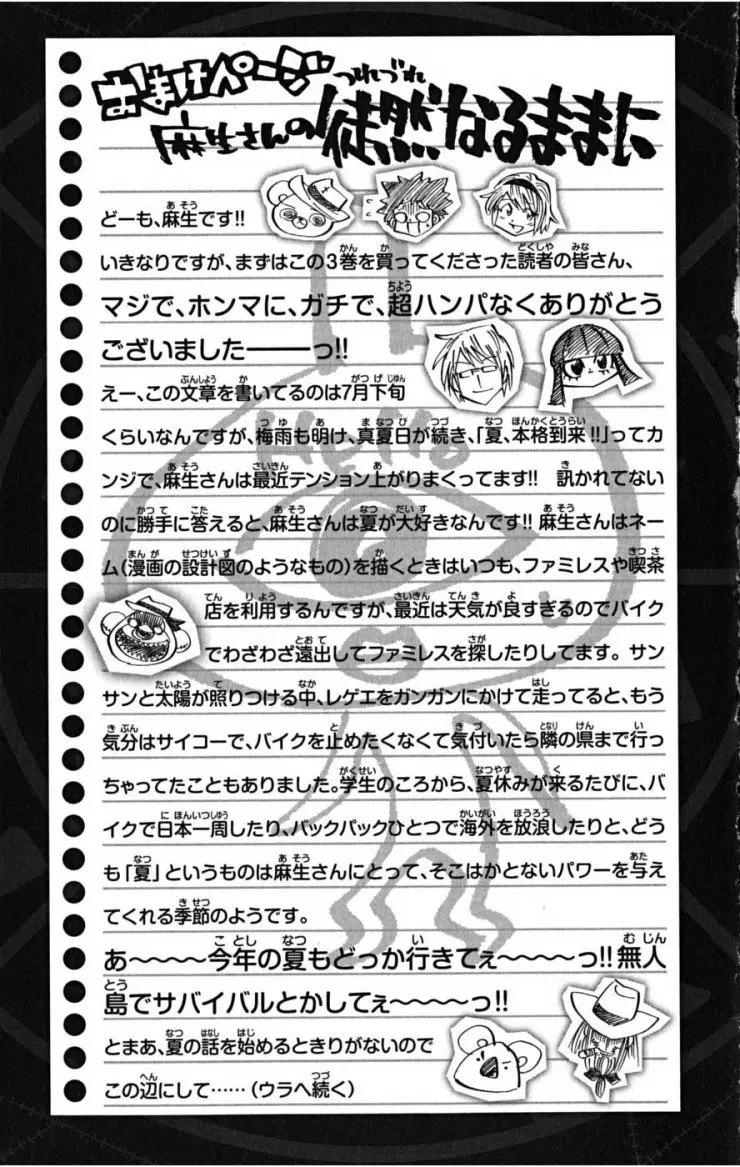 おまけページ
麻生さんの徒然なるままに
どーも、麻生です!!
いきなりですが、まずはこの3巻を買ってくださった読者の皆さん、
マジで、ホンマに、ガチで、超ハンパなくありがとう
ございました―――っ!!
えー、この文章を書いてるのは7月下旬
くらいなんですが、梅雨も明け、真夏日が続き、「夏、本格到来!!」ってカ
ンジで、麻生さんは最近テンション上がりまくってます!! 訊かれてない
のに勝手に答えると、麻生さんは夏が大好きなんです!! 麻生さんはネー
ム(漫画の設計図のようなもの)を描くときはいつも、ファミレスや喫茶
店を利用するんですが、最近は天気が良すぎるのでバイク
でわざわざ遠出してファミレスを探したりしてます。サン
サンと太陽が照りつける中、レゲエをガンガンにかけて走ってると、もう
気分はサイコーで、バイクを止めたくなくて気付いたら隣の県まで行っ
ちゃってたこともありました。学生のころから、夏休みが来るたびに、バ
イクで日本一周したり、バックパックひとつで海外を放浪したりと、どう
も「夏」というものは麻生さんにとって、そこはかとないパワーを与え
てくれる季節のようです。
あ〜〜〜〜今年の夏もどっか行きてぇ〜〜〜〜っ!!無人
島でサバイバルとかしてぇ〜〜〜〜っ!!
とまあ、夏の話を始めるときりがないので
この辺にして……(ウラへ続く)